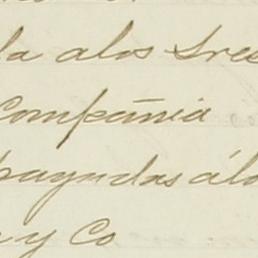 la alos Sres
Compañia
pagados álo
y Co